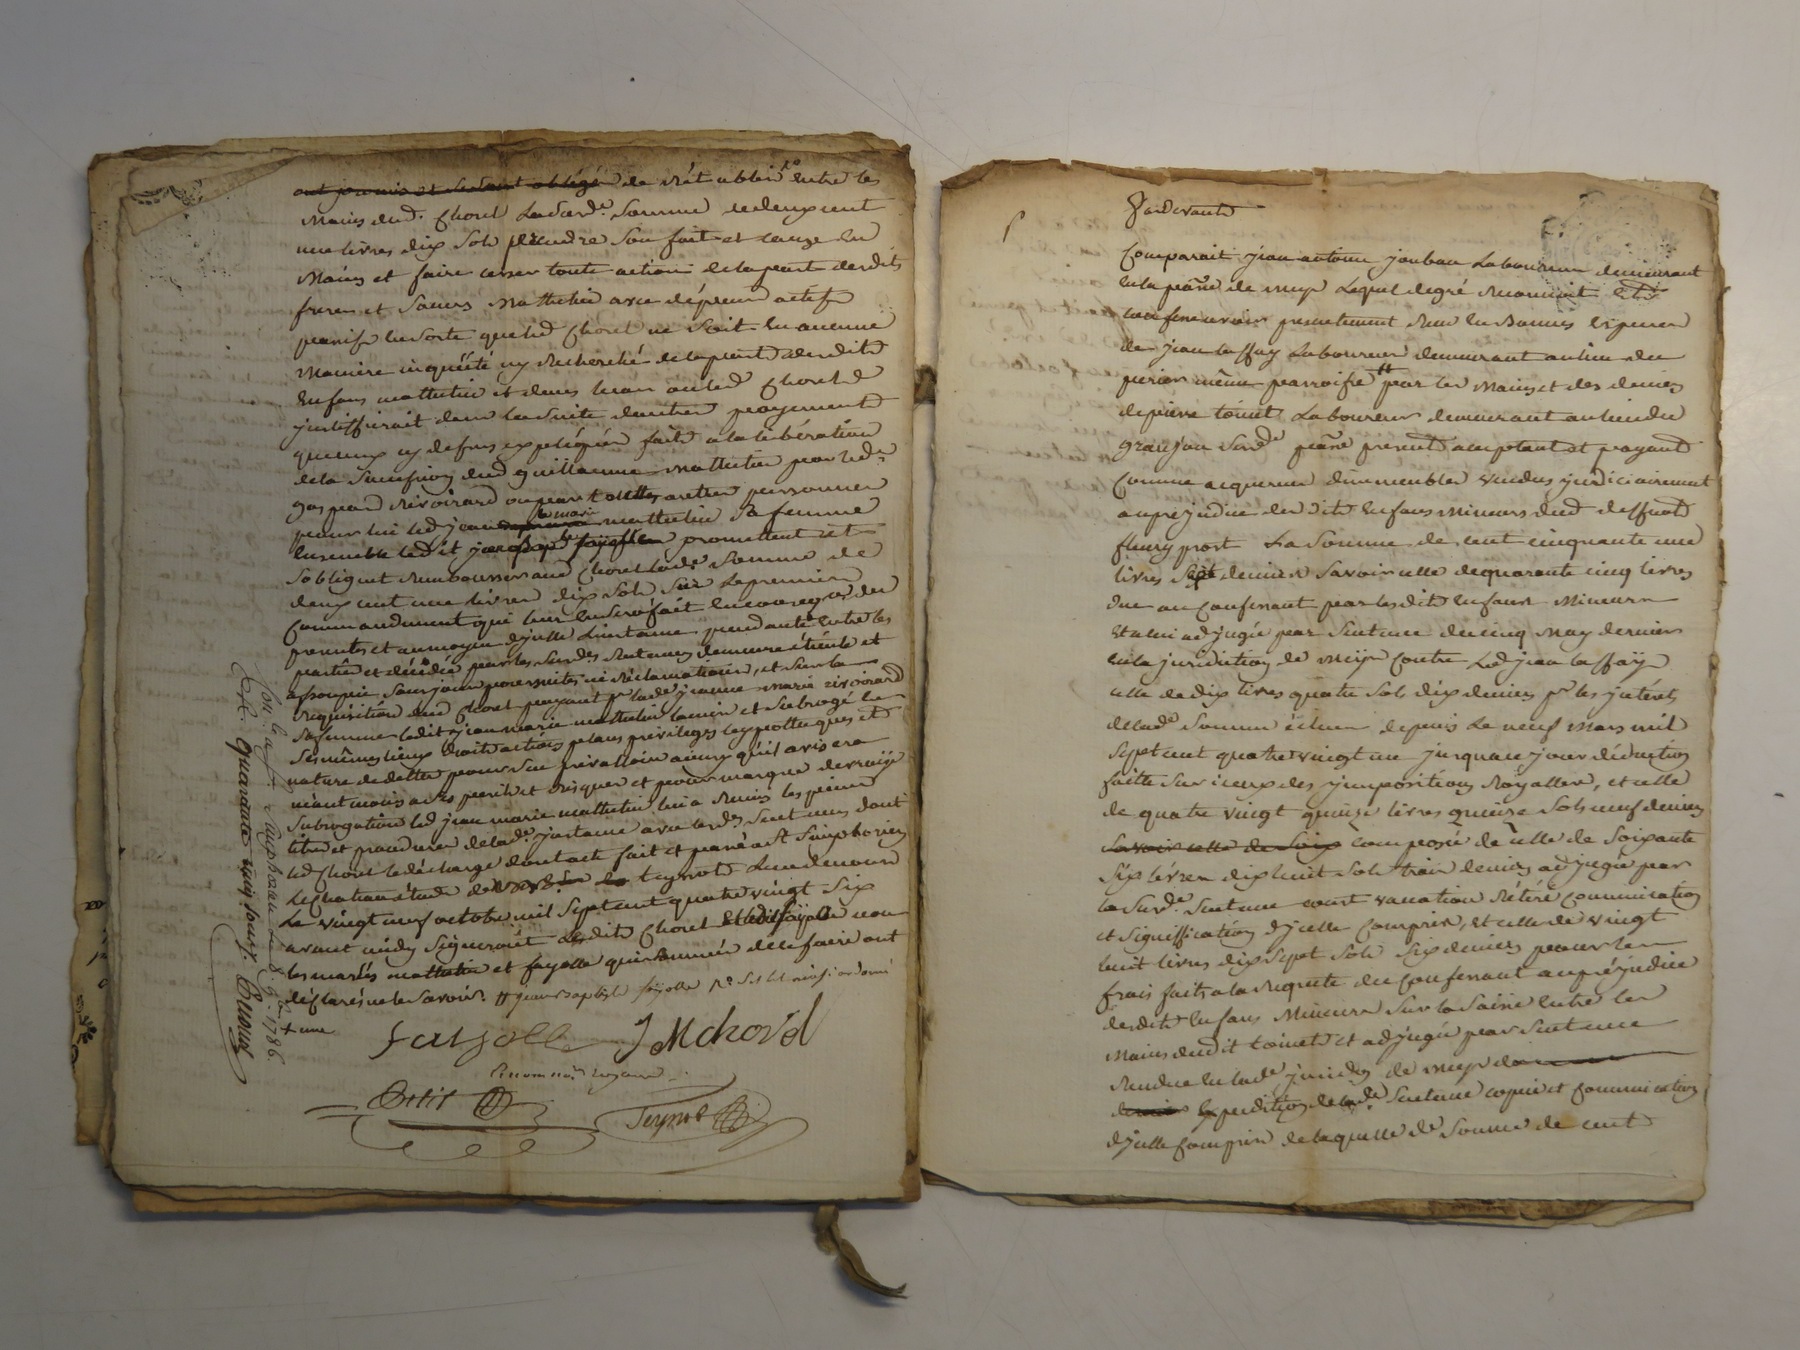 ont promis et se sont obligé de rétablir entre les
mains dud. Chorel lasusd.e somme de deux cent
une livres dix sols prendre son fait et cauze en
mains et faire cesser toute action de la part desdits
freres et sœurs Mathelin avec dépens actifs
passifs en sorte que led Chorel ne soit en aucune
maniere inquiété ny recherché de la part desdits
enfans mathelin et dans le cas ou led Chorel
justiffierait dans la suite d'autres payements
que ceux cy dessus expliqués faits a la libération
de la succession dud guillaume Mathelin par led.
gaspard rivoirard ou par d'autres personnes
pour lui led jean marie mathelin sa femme
ensemble ledit jean bap.te fayolle promettent et
s'obligent rembourser aud Chorel lad.e somme de
deux cent une livres dix sols sur le premier
commandement qui leur en sera fait
parents et au moyen d'icelle l'instance pendante entre les
parties et décidée par les susd.es sentences demeure éteinte et
assoupie sans jamais poursuites ni réclamations, et sur la
requisition dud Chorel payant p.r lad.e jeanne marie rivoirard
sa femme ledit jean marie mathelin l'a mis et subrogé en
ses mêmes lieux droits actions places privileges hypotheques et
nature de dettes pour s'en prévaloir ainsy qu'il avisera
néantmoins a ses perils et risques et pour marque de vraije
subrogation led jean marie mathelin lui a remis les pieces
titres et procedures de lad.e instance avec lesd.es sentences dont
led Chorel le décharge dont acte fait et passé a St Simphorien
le chatel étude de teynot l'un de nous
le vingt neuf octobre mil sept cent quatre vingt six
avant midy signeront lesdits Chorel et ledit fayolle non
les mariés mathelin et fayolle qui sommés de le faire ont
déclaré ne le savoir. # jean baptiste fayolle
+ une
fayolle J M chorel
Petit Teynot
Con.lé a St Simphorien le 8 9.bre 1786.
quarante cinq sous.
Pardevant
Comparait jean antoine joubau laboureur demeurant
en la p.sse de meys lequel de gré reconnoit et
confesse avoir presentement reçu en bonnes especes
de jean laffay laboureur demeurant au lieu du
perier même parroisse # par les mains et des deniers
de pierre toinet laboureur demeurant au lieu du
granjon susd.e p.sse present acceptant et payant
comme acquereur d'immeubles vendus judiciairement
au prejudice desdits enfans mineurs dud deffunt
fleury prost la somme de cent cinquante une
livres sept deniers savoir celle de quarante cinq livres
due au confessant par lesdits enfans mineurs
et a lui adjugée par sentence du cinq may dernier
en la juridiction de Meys contre led jean laffay
celle de dix livres quatre sols dix deniers p.r les jnterets
de lad.e somme échus depuis le neuf mars mil
sept cent quatre vingt une jusqu'au jour déduction
faitte sur iceux des jmpositions royalles, et celle
de quatre vingt quinze livres quinze sols neuf deniers
savoir celle de soix composée de celle de soixante
six livres dix huit sols trois deniers adjugée par
la susd.e sentence court vacation réteré communication
et signiffication d'jcelle compris, et celle de vingt
huit livres dix sept sols six deniers pour les
frais faits a la requete du confessant au préjudice
desdits enfans mineurs sur la saisie entre les
mains dudit toinet et adjugée par sentence
rendue en lad.e juridion de meys
expedition de lad.e sentence copie et communication
d'jcelle compris de laquelle d.e somme de cent